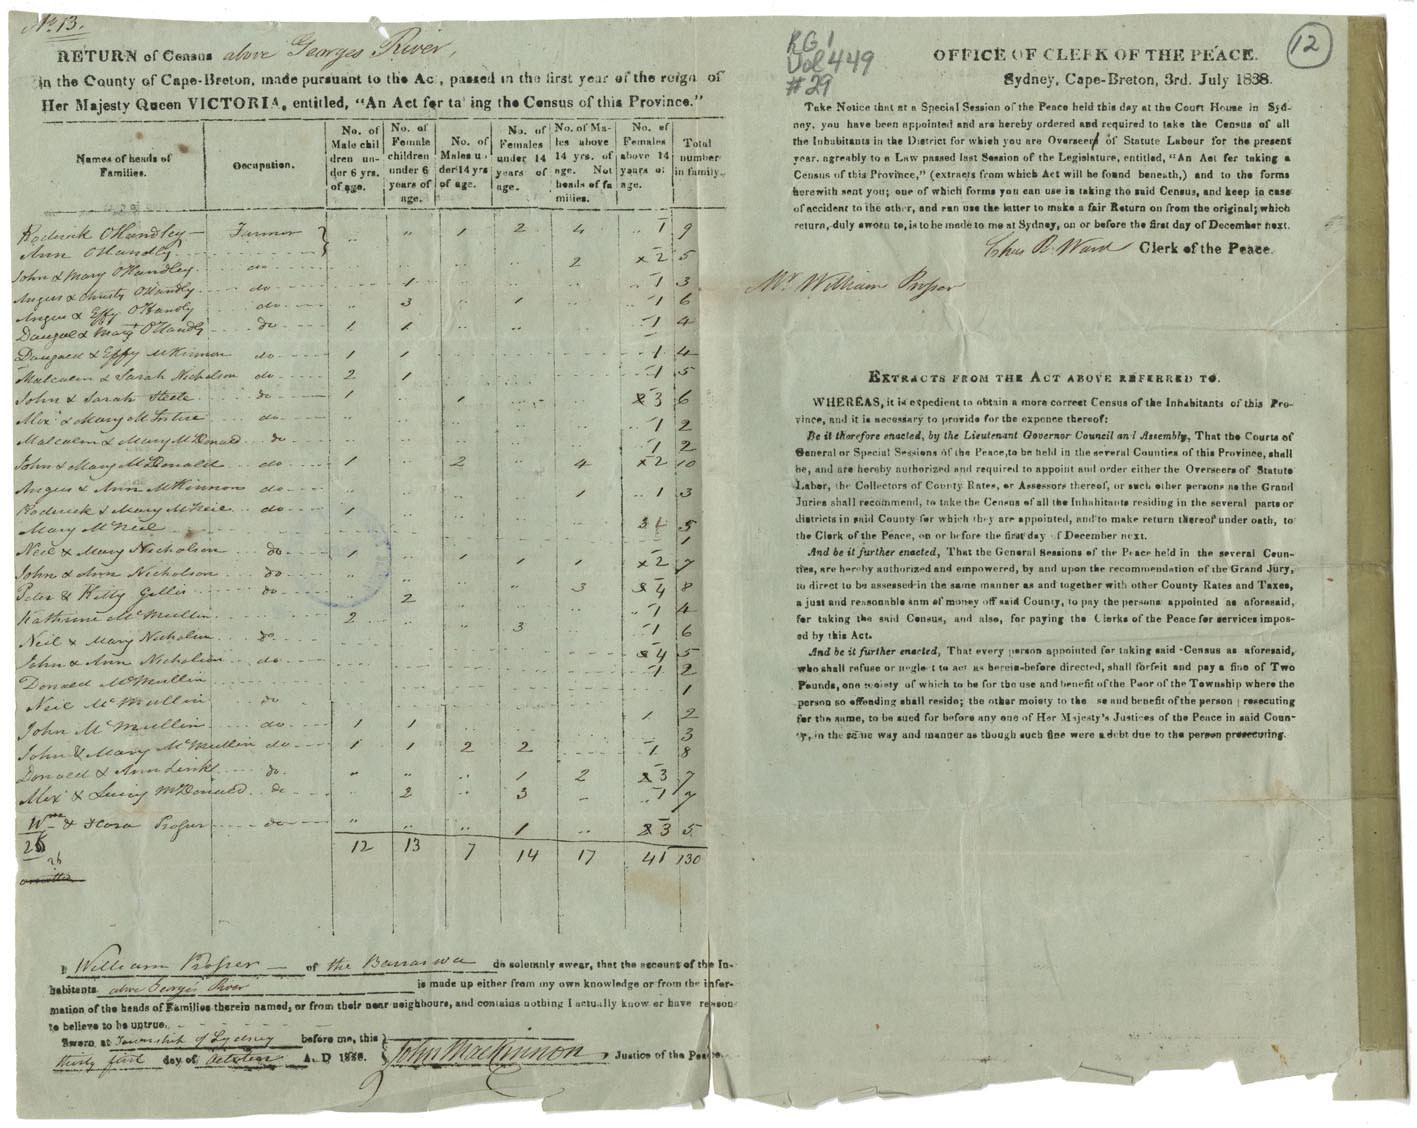 No. 13.
RETURN of Census above Georges River,
in the County of Cape-Breton, made pursuant to the Act, passed in the first year of the reign of
Her Majesty Queen VICTORIA, entitled, "An Act for ta ing the Census of this Province."
Names of heads of Families.
Occupation.
No. of Male chil dren un- der 6 yrs. of age.
No. of Female children under 6 years of age.
No. of Males u der 14 yrs of age.
No. of Females under 14 years of age.
No. of Ma- les above 14 yrs. of age. Not heads of fa milies.
No. of Females above 14 years of age.
Total number in family.
Roderick O'Handley — Farmer } " " 1 2 4 " 1 9
Ann O'Handley
John & Mary O'Handley do 2 2 5
Angus & Christy O'Handly do 1 1 3
Angus & Effy O'Handly do 3 1 1 6
Dougal & Mary O'Handly do 1 1 1 4
Dougald & Effy McKinnon do 1 1 1 4
Malcolm & Sarah Nicholson do 2 1 1 5
John & Sarah Steele do 1 1 3 6
Alexr & Mary do 1 2
Malcolm & Mary McDonald do 1 2
John & Mary McDonald do 1 2 4 2 10
Angus & Ann McKinnon do 1 1 3
Roderick & Mary McNeil do 1 5
Mary McNeil 1
Neil & Mary Nicholson do 1 1 1 1 2 7
John & Ann Nicholson do 3 4 8
Peter & Kitty Gillis do 2 1 4
Katherine McMullin 2 3 1 6
Neil & Mary Nicholson do 4 5
John & Ann Nicholson do 1 2
Donald McMullin 1
Neil McMullin do 1 2
John McMullin do 1 1 3
John & Mary McMullin do 1 1 2 2 1 8
Donald & Ann do 1 2 3 7
Alexr & McDonald do 2 3 1 7
Wm & Flora Prosper do 1 3 5
26
12 13 7 14 17 41 130
26
I William Prosper of the Barraswa do solemnly swear, that the account of the In-
habitants above Georges River is made up either from my own knowledge or from the infor-
mation of the heads of Families therein named, or from their near neighbours, and contains nothing I actually know or have reason
to believe to be untrue.
Sworn at Township of Sydney before me, this }
thirty first day of October A. D 1838. } John MacKinnon Justice of the Peace
RG 1
Vol 449
#29
12
OFFICE OF CLERK OF THE PEACE.
Sydney, Cape-Breton, 3rd. July 1838.
Take Notice that at a Special Session of the Peace held this day at the Court House in Syd-
ney, you have been appointed and are hereby ordered and required to take the Census of all
the Inhabitants in the District for which you are Overseer of Statute Labour for the present
year, agreably to a Law passed last Session of the Legislature, entitled, "An Act for taking a
Census of this Province," (extracts from which Act will be found beneath,) and to the forms
herewith sent you; one of which forms you can use in taking the said Census, and keep in case
of accident to the other, and can use the latter to make a fair Return on from the original; which
return, duly sworn to, is to be made to me at Sydney, on or before the first day of December next.
Chas R. Ward Clerk of the Peace.
Mr William Prosper
EXTRACTS FROM THE ACT ABOVE REFERRED TO.
WHEREAS, it is expedient to obtain a more correct Census of the Inhabitants of this Pro-
vince, and it is necessary to provide for the expence thereof:
Be it therefore enacted, by the Lieutenant Governor Council and Assembly, That the Courts of
General or Special Sessions of the Peace, to be held in the several Counties of this Province, shall
be, and are hereby authorized and required to appoint and order either the Overseers of Statute
Labor, the Collectors of County Rates, or Assessors thereof, or such other persons as the Grand
Juries shall recommend, to take the Census of all the Inhabitants residing in the several parts or
districts in said County for which they are appointed, and to make return thereof under oath, to
the Clerk of the Peace, on or before the first day of December next.
And be it further enacted, That the General Sessions of the Peace held in the several Coun-
ties, are hereby authorized and empowered, by and upon the recommendation of the Grand Jury,
to direct to be assessed in the same manner as and together with other County Rates and Taxes,
a just and reasonable sum of money off said County, to pay the persons appointed as aforesaid,
for taking the said Census, and also, for paying the Clerks of the Peace for services impos-
ed by this Act.
And be it further enacted, That every person appointed for taking said Census as aforesaid,
who shall refuse or neglect to act as herein-before directed, shall forfeit and pay a fine of Two
Pounds, one moiety of which to be for the use and benefit of the Poor of the Township where the
person so offending shall reside; the other moiety to the se and benefit of the person prosecuting
for the same, to be sued for before any one of Her Majesty's Justices of the Peace in said Coun-
ty, in the same way and manner as though such fine were a debt due to the person prosecuting.